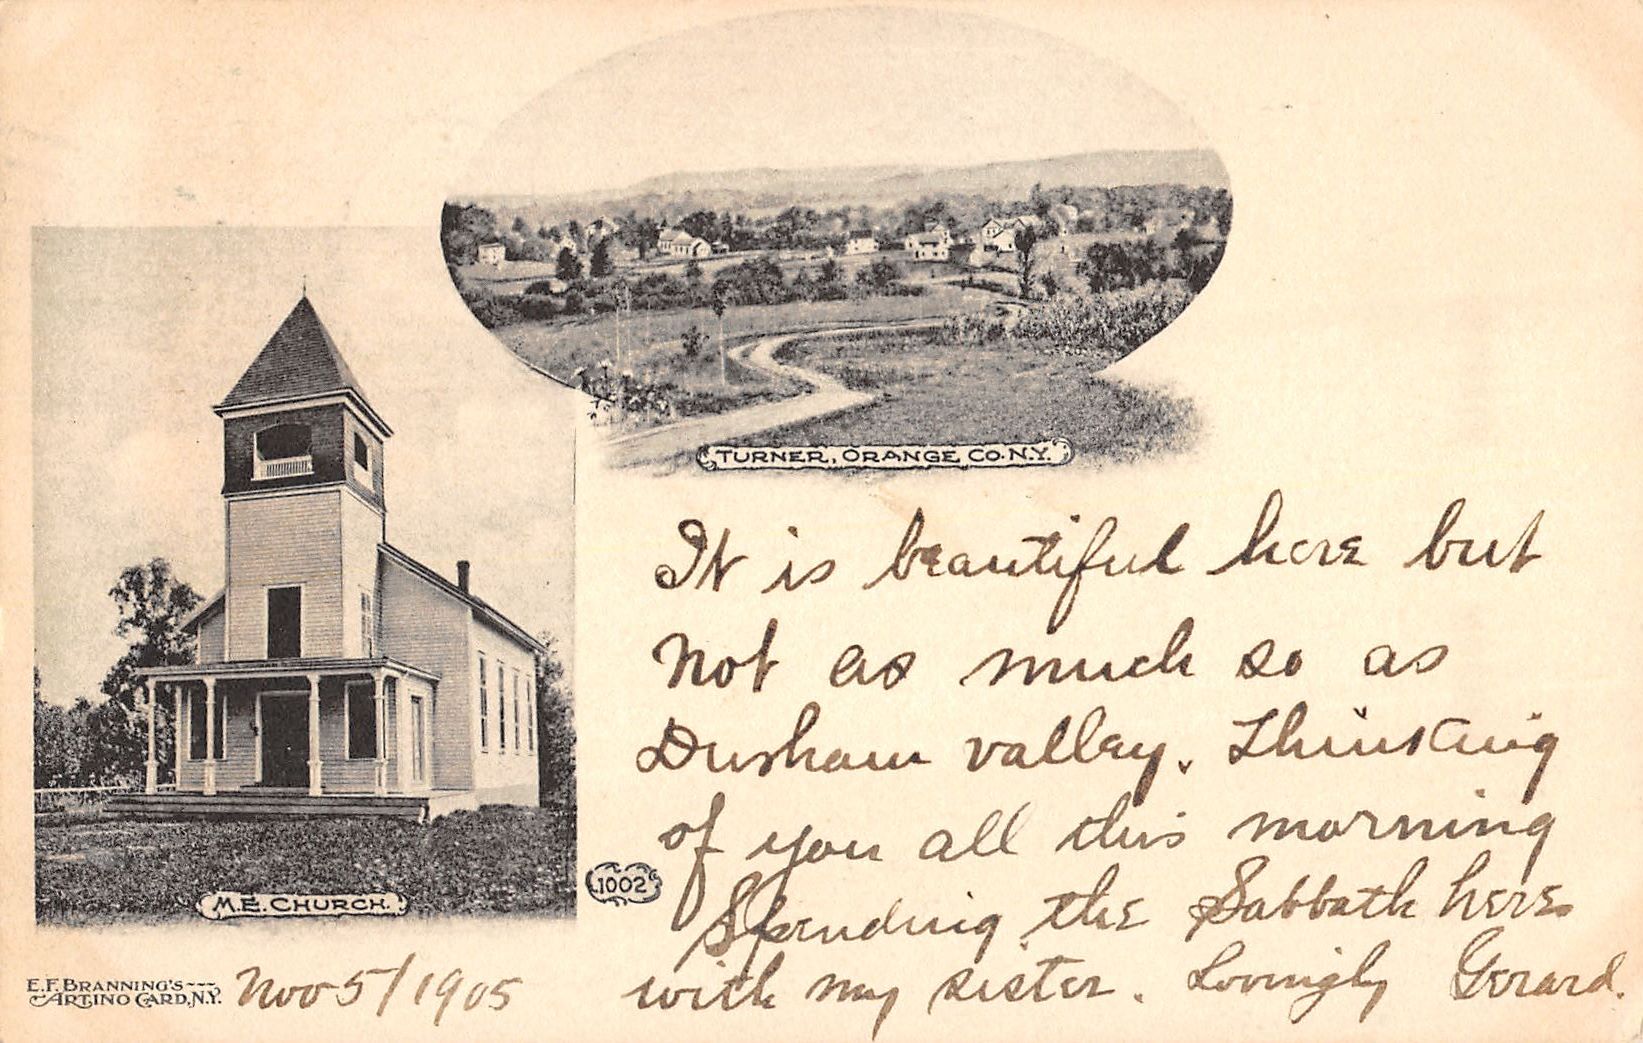 TURNER, ORANGE CO. N.Y.
M.E. CHURCH.
1002
It is beautiful here but
not as much so as
Durham valley. Thinking
of you all this morning
Spending the Sabbath here
with my sister. Lovingly Gerard.
E.F. BRANNING'S---
ARTINO CARD, N.Y.
Nov 5/1905